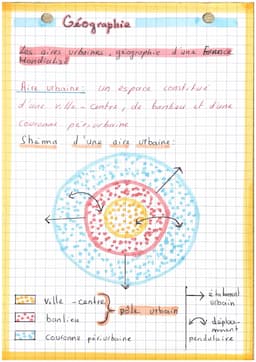 Géographie
Les aires urbaines, géographie d'une France
Mondialisé
Aire urbaine: un espace constitué
d'une ville-centre, de banlieu et d'une
couronne périurbaine
Shéma d'une aire urbaine:
ville-centre
banlieu
couronne périurbaine
pôle urbain
étalement
urbain
déplacement
pendulaire